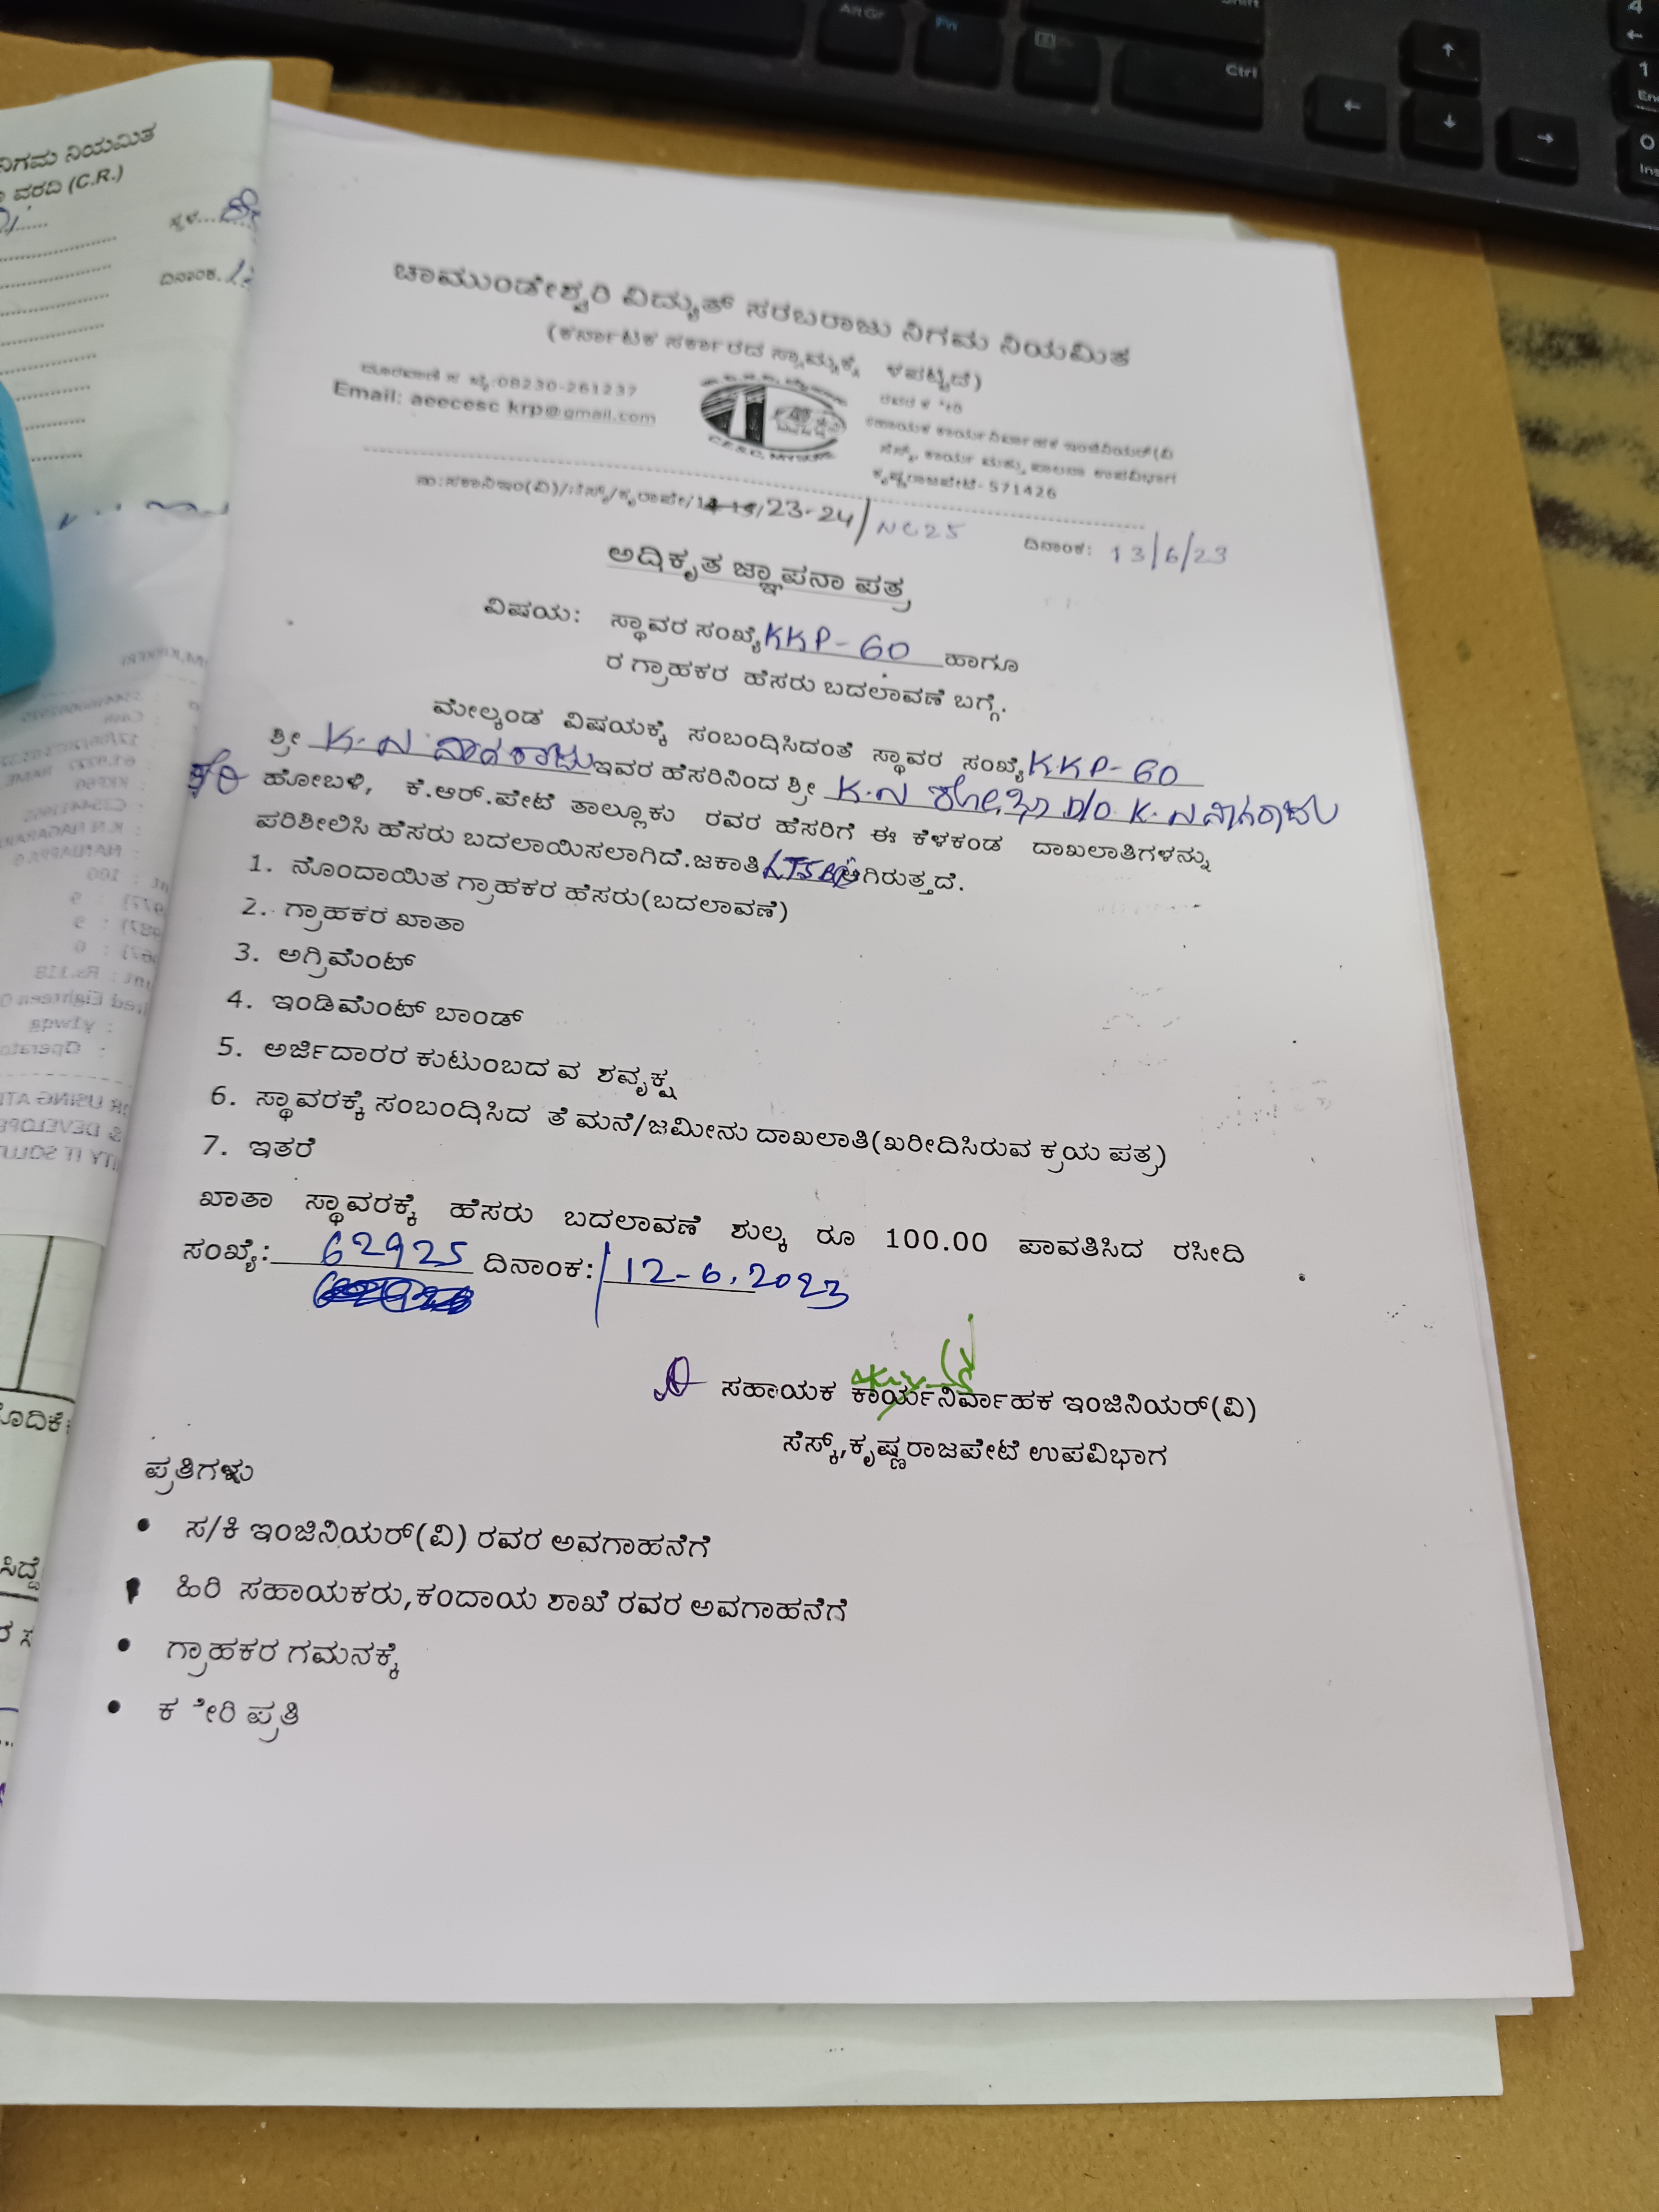 ನಿಗಮ ನಿಯಮಿತ
ವರದಿ (C.R.)
ಸ್ಥಳ...
ದಿನಾಂಕ..
ಚಾಮುಂಡೇಶ್ವರಿ ವಿದ್ಯುತ್ ಸರಬರಾಜು ನಿಗಮ ನಿಯಮಿತ
(ಕರ್ನಾಟಕ ಸರ್ಕಾರದ ಸ್ವಾಮ್ಯಕ್ಕೆ ಳಪಟ್ಟಿದೆ)
ದೂರವಾಣಿ ಸ ಖ್ಯೆ:08230-261237
Email: aeecesc krp@gmail.com
ರವರ ಕ ೇರಿ
ಸಹಾಯಕ ಕಾರ್ಯನಿರ್ವಾಹಕ ಇಂಜಿನಿಯರ್(ವಿ
ಸೆಸ್ಕ್, ಕಾರ್ಯ ಮತ್ತು ಪಾಲನಾ ಉಪವಿಭಾಗ
ಕೃಷ್ಣರಾಜಪೇಟೆ- 571426
ಸಂ:ಸಕಾನಿಇಂ(ವಿ)/ಸೆಸ್ಕ್/ಕೃರಾಪೇ/14-15/23-24/NC25
ದಿನಾಂಕ: 13/6/23
ಅಧಿಕೃತ ಜ್ಞಾಪನಾ ಪತ್ರ
ವಿಷಯ: ಸ್ಥಾವರ ಸಂಖ್ಯೆ KKP-60 ಹಾಗೂ
ರ ಗ್ರಾಹಕರ ಹೆಸರು ಬದಲಾವಣೆ ಬಗ್ಗೆ.
ಮೇಲ್ಕಂಡ ವಿಷಯಕ್ಕೆ ಸಂಬಂಧಿಸಿದಂತೆ ಸ್ಥಾವರ ಸಂಖ್ಯೆ KKP-60
ಶ್ರೀ K.N ನಾಗರಾಜು ಇವರ ಹೆಸರಿನಿಂದ ಶ್ರೀ K.N D/O K.N ನಾಗರಾಜು
ಹೋಬಳಿ, ಕೆ.ಆರ್.ಪೇಟೆ ತಾಲ್ಲೂಕು ರವರ ಹೆಸರಿಗೆ ಈ ಕೆಳಕಂಡ ದಾಖಲಾತಿಗಳನ್ನು
ಪರಿಶೀಲಿಸಿ ಹೆಸರು ಬದಲಾಯಿಸಲಾಗಿದೆ.ಜಕಾತಿ ಆಗಿರುತ್ತದೆ.
1. ನೊಂದಾಯಿತ ಗ್ರಾಹಕರ ಹೆಸರು(ಬದಲಾವಣೆ)
2. ಗ್ರಾಹಕರ ಖಾತಾ
3. ಅಗ್ರಿಮೆಂಟ್
4. ಇಂಡಿಮೆಂಟ್ ಬಾಂಡ್
5. ಅರ್ಜಿದಾರರ ಕುಟುಂಬದ ವ ಶವೃಕ್ಷ
6. ಸ್ಥಾವರಕ್ಕೆ ಸಂಬಂಧಿಸಿದ ತೆ ಮನೆ/ಜಮೀನು ದಾಖಲಾತಿ(ಖರೀದಿಸಿರುವ ಕ್ರಯ ಪತ್ರ)
7. ಇತರೆ
ಖಾತಾ ಸ್ಥಾವರಕ್ಕೆ ಹೆಸರು ಬದಲಾವಣೆ ಶುಲ್ಕ ರೂ 100.00 ಪಾವತಿಸಿದ ರಸೀದಿ
ಸಂಖ್ಯೆ: 62925 ದಿನಾಂಕ: 12-6.2023
ಸಹಾಯಕ ಕಾರ್ಯನಿರ್ವಾಹಕ ಇಂಜಿನಿಯರ್(ವಿ)
ಸೆಸ್ಕ್,ಕೃಷ್ಣರಾಜಪೇಟೆ ಉಪವಿಭಾಗ
ಪ್ರತಿಗಳು
• ಸ/ಕಿ ಇಂಜಿನಿಯರ್(ವಿ) ರವರ ಅವಗಾಹನೆಗೆ
• ಹಿರಿ ಸಹಾಯಕರು,ಕಂದಾಯ ಶಾಖೆ ರವರ ಅವಗಾಹನೆಗೆ
• ಗ್ರಾಹಕರ ಗಮನಕ್ಕೆ
• ಕ ೇರಿ ಪ್ರತಿ